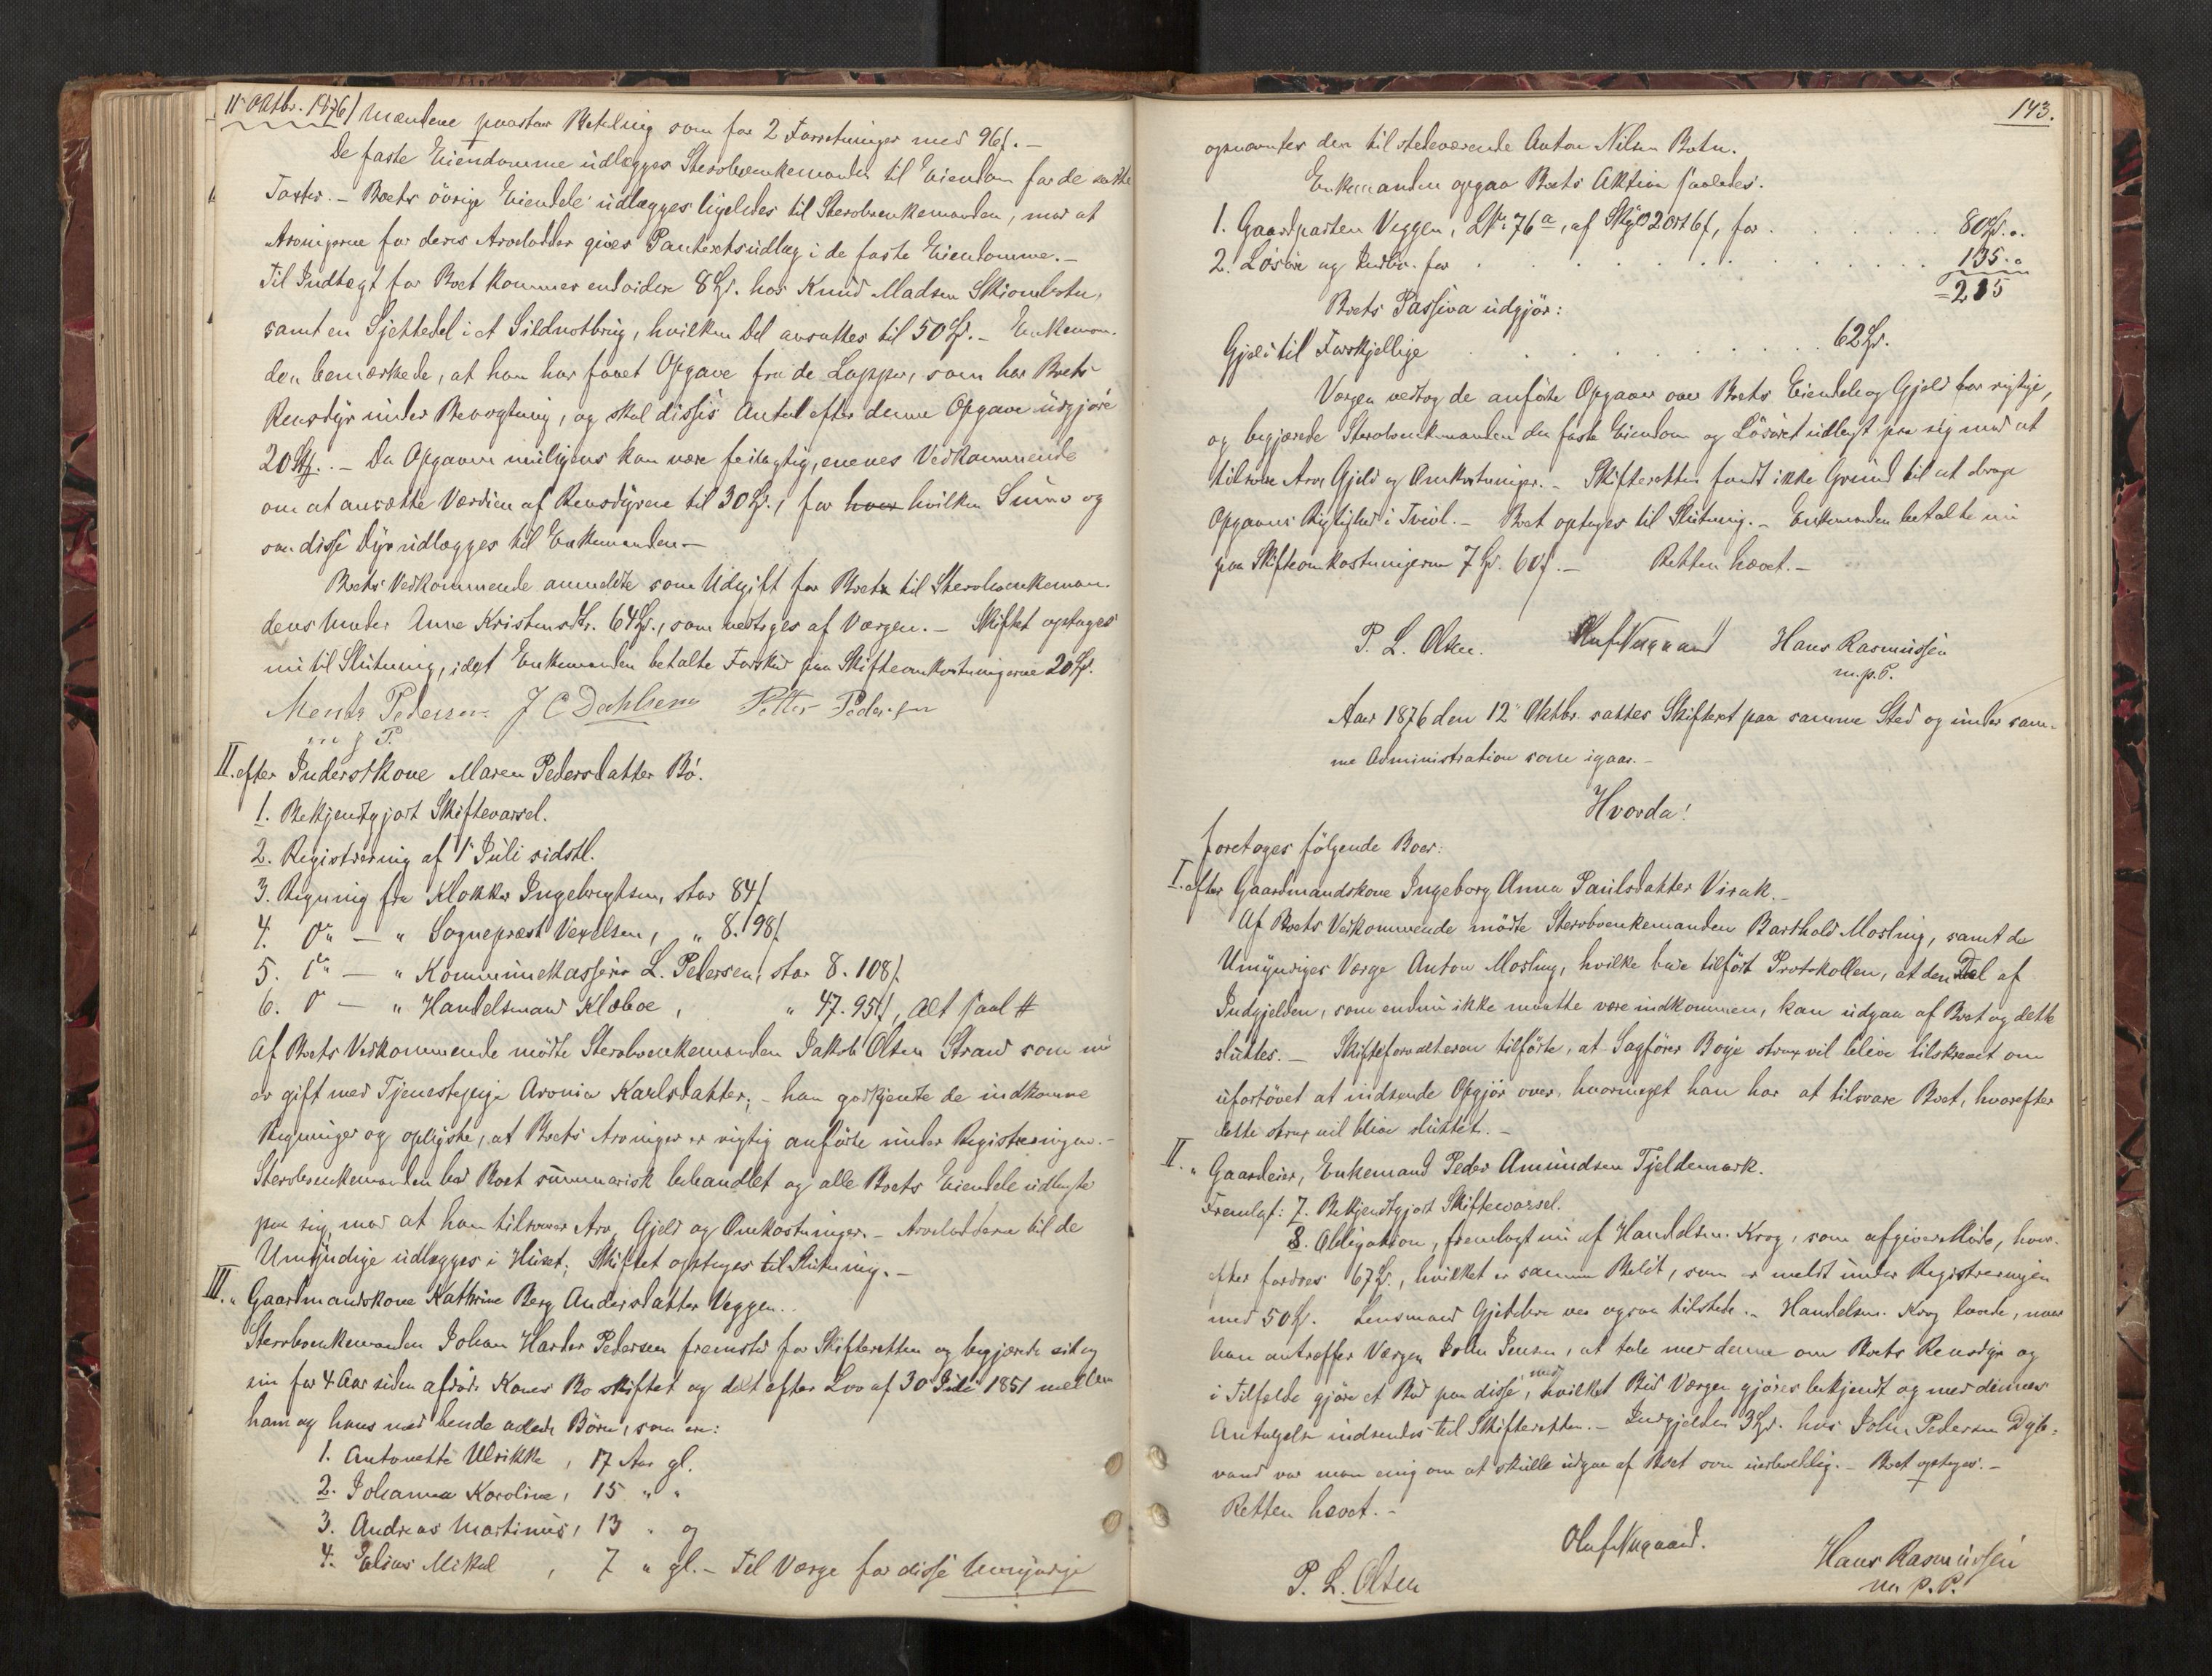 11 Oktbr. 1876/ Mændene paastar Betaling som for 2 Forretninger med 96 ſ. —
De faste Eiendomme udlægges Stervboenkemanden til Eiendom for de satte
Taxter. — Boets övrige Eiendele udlægges ligeledes til Stervboenkemanden, mod at
Arvingerne for deres Arvelodder gives Panteretsudlæg i de faste Eiendomme. —
Til Indtægt for Boet kommer endvidere 8 Spd. hos Knud Madsen
samt en Sjettedel i et Sildnotbrug, hvilken Del ansættes til 50 Spd. — Enkeman-
den bemærkede, at han har faaet Opgave fra de Lapper, som har Boets
Rensdyr under Bevogtning, og skal disses Antal efter denne Opgave udgjöre
20 Stk. — Da Opgaven muligens kan være feilagtig, enenes Vedkommende
om at ansætte Værdien af Rensdyrene til 30 Spd., for hver hvilken Summa og
saa disse Dyr udlægges til Enkemanden —
Boets Vedkommende anmeldte som Udgift for Boet til Stervboenkeman-
dens Moder Anne Kristensdtr. 64 Spd., som vedtoges af Værgen. — Skiftet optages
nu til Slutning, idet Enkemanden betalte Forskud paa Skifteomkostningerne 20 Spd.
Mentz Pedersen J C Dahlsen Petter Pedersen
m f P.
II. efter Inderstkone Maren Pedersdatter Bö.
1. Bekjendtgjort Skiftevarsel.
2. Registrering af 1 Juli sidstl.
3. Regning fra Klokker Ingebrigtsen, stor 84 ſ.
4. Do — " Sognepræst Vexelsen, " 8. 98 ſ.
5. Do — " Kommunekasserer L. Pedersen, stor 8. 108 ſ.
6. Do — " Handelsmand Klæboe, " 47. 95 ſ, Alt saal #
Af Boets Vedkommende mödte Stervboenkemanden Jakob Olsen Strand som nu
er gift med Tjenestepige Aronia Karlsdatter; — han godkjente de indkomne
Regninger og oplyste, at Boets Arvinger er rigtig anförte under Registreringen. —
Stervboenkemanden bad Boet summarisk behandlet og alle Boets Eiendele udlagte
paa sig, mod at han tilsvarer Arv, Gjeld og Omkostninger. — Arvelodderne til de
Umyndige udlægges i Huset; Skiftet optages til Slutning. —
III. " Gaardmandskone Kathrine Berg Andersdatter Veggen.
Stervboenkemanden Johan Harder Pedersen fremstod for Skifteretten og begjærede sit og
sin for 4 Aar siden afdöde Kones Bo skiftet og delt efter Lov af 30 Juli 1851 mellem
ham og hans med hende avlede Börn, som ere:
1. Antonette Ulrikke, 17 Aar gl.
2. Johanna Karoline, 15 " "
3. Andreas Martinus, 13 " og
4. Elias Mikal, 7 " gl. — Til Værge for disse Umyndige
143.
opnævntes den tilstedeværende Anton Nilsen Botn.
Enkemanden opgav Boets Aktiva saaledes:
1. Gaardparten Veggen, L.Nr. 76a, af Skyld 2 ort 6 ſ, for . . . . . 80 Spd. "
2. Lösöre og Indbo. for . . . . . . . . 135. "
=215
Boets Passiva udgjör:
Gjæld til Forskjellige . . . . . . . 62 Spd.
Værgen vedtog de anförte Opgaver over Boets Eiendele og Gjeld for rigtige,
og begjærede Stervboenkemanden den faste Eiendom og Lösöret udlagt paa sig mod at
tilsvare Arv, Gjeld og Omkostninger. — Skifteretten fandt ikke Grund til at drage
Opgavens Rigtighed i Tvivl. — Boet optages til Slutning. — Enkemanden betalte nu
paa Skifteomkostningerne 7 Spd. 60 ſ. — Retten hævet. —
P. L. Olsen. Oluf Nygaard Hans Rasmussen
m. p. P.
Aar 1876 den 12 Oktbr. sattes Skifteret paa samme Sted og under sam-
me Administration som igaar. —
Hvorda!
foretoges fölgende Boer:
I. efter Gaardmandskone Ingeborg Anna Paulsdatter Virak. —
Af Boets Vedkommende mödte Stervboenkemanden Barthold Mosling, samt de
Umyndiges Værge Anton Mosling, hvilke bade tilfört Protokollen, at den Del af
Indgjelden, som endnu ikke maatte være indkommen, kan udgaa af Boet og dette
sluttes. — Skifteforvalteren tilförte, at Sagförer Boye strax vil blive tilskrevet om
ufortövet at indsende Opgjör over, hvormeget han har at tilsvare Boet, hvorefter
dette strax vil blive sluttet. —
II. " Gaardeier, Enkemand Peder Amundsen Tjeldemark.
Fremlagt: 7. Bekjendtgjort Skiftevarsel.
8. Obligation, fremlagt nu af Handelsm. Krog, som afgiver Möde, hvor-
efter fordres 67 Spd., hvilket er samme Belöb, som er meldt under Registreringen
med 50 Spd. Lensmand var ogsaa tilstede. — Handelsm. Krog lovede, naar
han antræffer Værgen John Jensen, at tale med denne om Boets Rensdyr og
i Tilfælde gjöre et Bud paa disse, med hvilket Bud Værgen gjöres bekjendt og med dennes
Antagelse indsendes til Skifteretten. — Indgjelden 3 Spd. hos John Pedersen Dyb-
vand var man enig om at skulle udgaa af Boet som uerholdelig. — Boet optages. —
Retten hævet. —
Oluf Nygaard.
P. L. Olsen Hans Rasmussen
m. p. P.